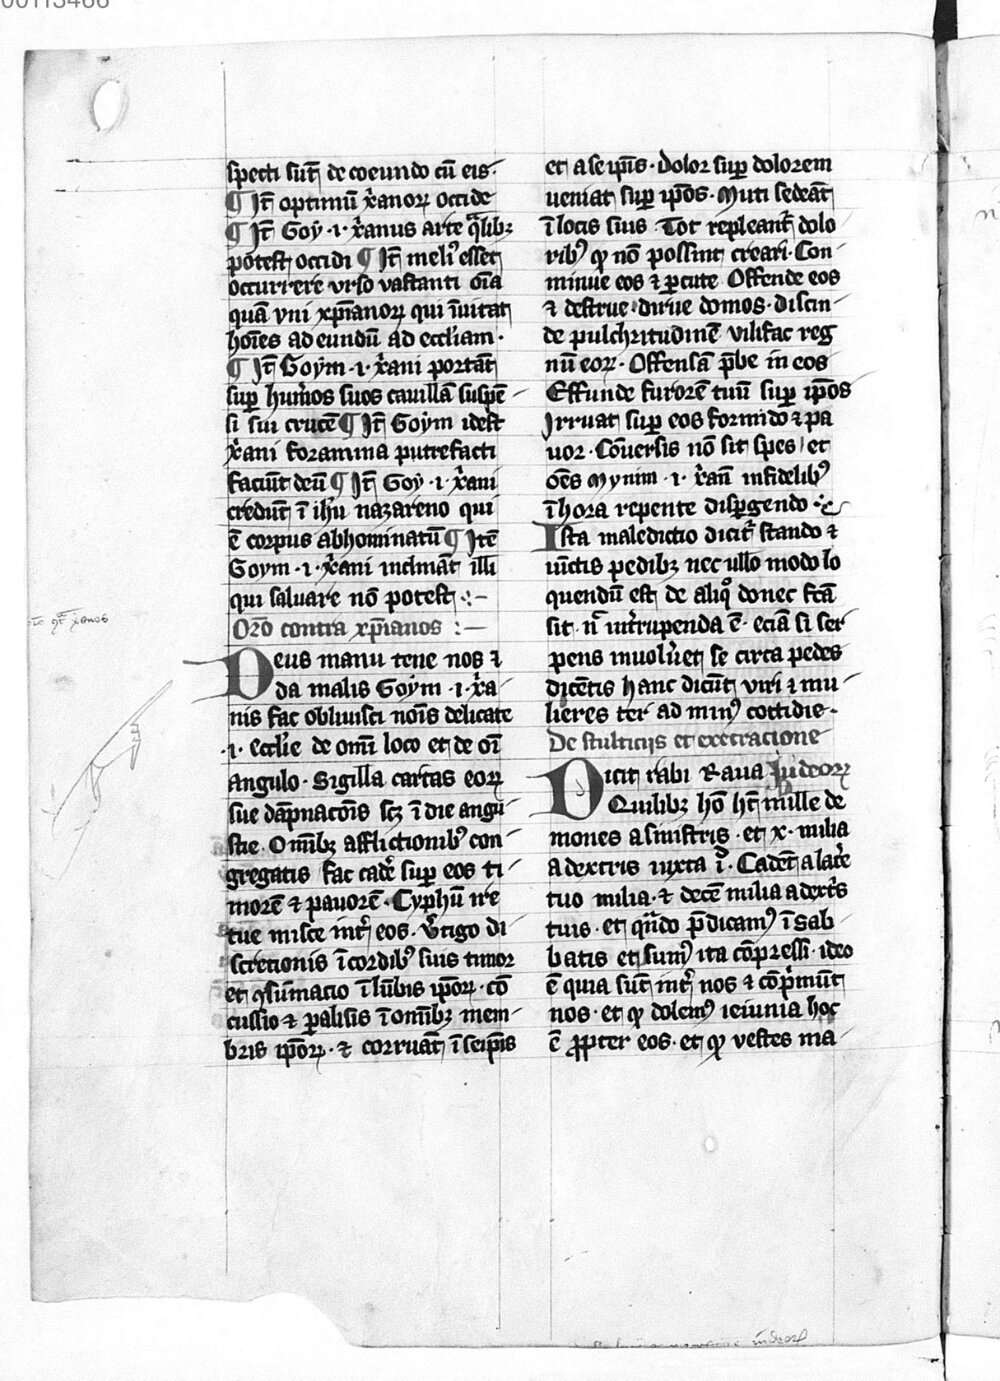 specti sūt de coeundo cū eis.
¶ Jt̄ optimū xanoꝝ occide
¶ Jt̄ Goy .i. xanus arte q̄libꝫ
potest occidi ¶ Jt̄ meliꝰ esset
occurrere vrso vastanti oīa
quā vni xp̄ianoꝝ qui īuitat
hoīes ad eundū ad eccl'iam.
¶ Jt̄ Goym .i. xani portāt
suꝑ hum̄os suos cauillā suspē
si sui crucē ¶ Jt̄ Goym idest
xani foramina putrefacti
faciūt deū ¶ Jt̄ Goy .i. xani
credūt ī ih̄u nazareno qui
ē corpus abhominatū ¶ Jtē
Goym .i. xani inclināt illi
qui saluare nō potest
Oro contra xp̄ianos
Deus manu tene nos ⁊
da malis Goym .i. xa
nis fac obliuisci noīs delicate
.i. Eccl'ie de om̄i loco et de oī
angulo. Sigilla cartas eoꝝ
sue dāpnacōis scꝫ ī die angu
stie. Omībꝫ afflictionibꝰ con
gregatis fac cadē suꝑ eos ti
morē ⁊ pauorē. Cyphū ire
tue misce int̄ eos. V̄tigo di
scretionis ī cordibꝰ suis timor
et ꝯsūmacio ī lūbis ip̄oꝝ. cō
cussio ⁊ ꝑalisis ī omībꝫ mem
bris ip̄oꝝ. ⁊ corruāt ī seip̄is
et a se ip̄is. Dolor suꝑ dolorem
ueniat suꝑ ip̄os. Muti sedeāt
ī locis suis. Tot repleant̄ dolo
ribꝰ qꝫ nō possint creari. Con
minue eos ⁊ ꝑcute Offende eos
⁊ destrue. dirue domos. discin
de pulchritudinē vilifac reg
nū eoꝝ. Offensā p̄be in eos
Effunde furorē tuū suꝑ ip̄os
Irruat suꝑ eos formido ⁊ pa
uor. Cōuersis nō sit spes et
oēs Mynim .i. xan̄ infidelibꝰ
ī hora repente disꝑgendo
Ista maledictio dicit̄ stando ⁊
iūctis pedibꝫ nec ullo modo lo
quendū est de aliqo donec fcā
sit. n̄ int̄rupenda ē. eciā si ser
pens inuolūet se circa pedes
dicētis hanc dicūt viri ⁊ mu
lieres ter ad minꝰ cottidie.
De stulticijs et execracione
Dicit rabi Raua Judeoꝝ
Quilibꝫ hō ht̄ mille de
mones a sinistris. et .x. milia
a dextris iuxta i. Cadēt a lat̄e
tuo milia. ⁊ decē milia a dext̄s
tuis. et qn̄do p̄dicamꝰ ī sab
batis et sumꝰ ita cōpressi. ideo
ē quia sūt int̄ nos ⁊ cōp̄mūt
nos. et qꝫ dolemꝰ ieiunia hoc
ē ꝓpter eos. et qꝫ vestes ma